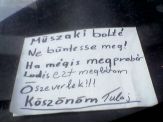 Műszaki bolté
Ne büntesse meg!
Ha mégis megprobál
ezt meglátom
Öszeverlek!!!
Köszönöm Tulaj